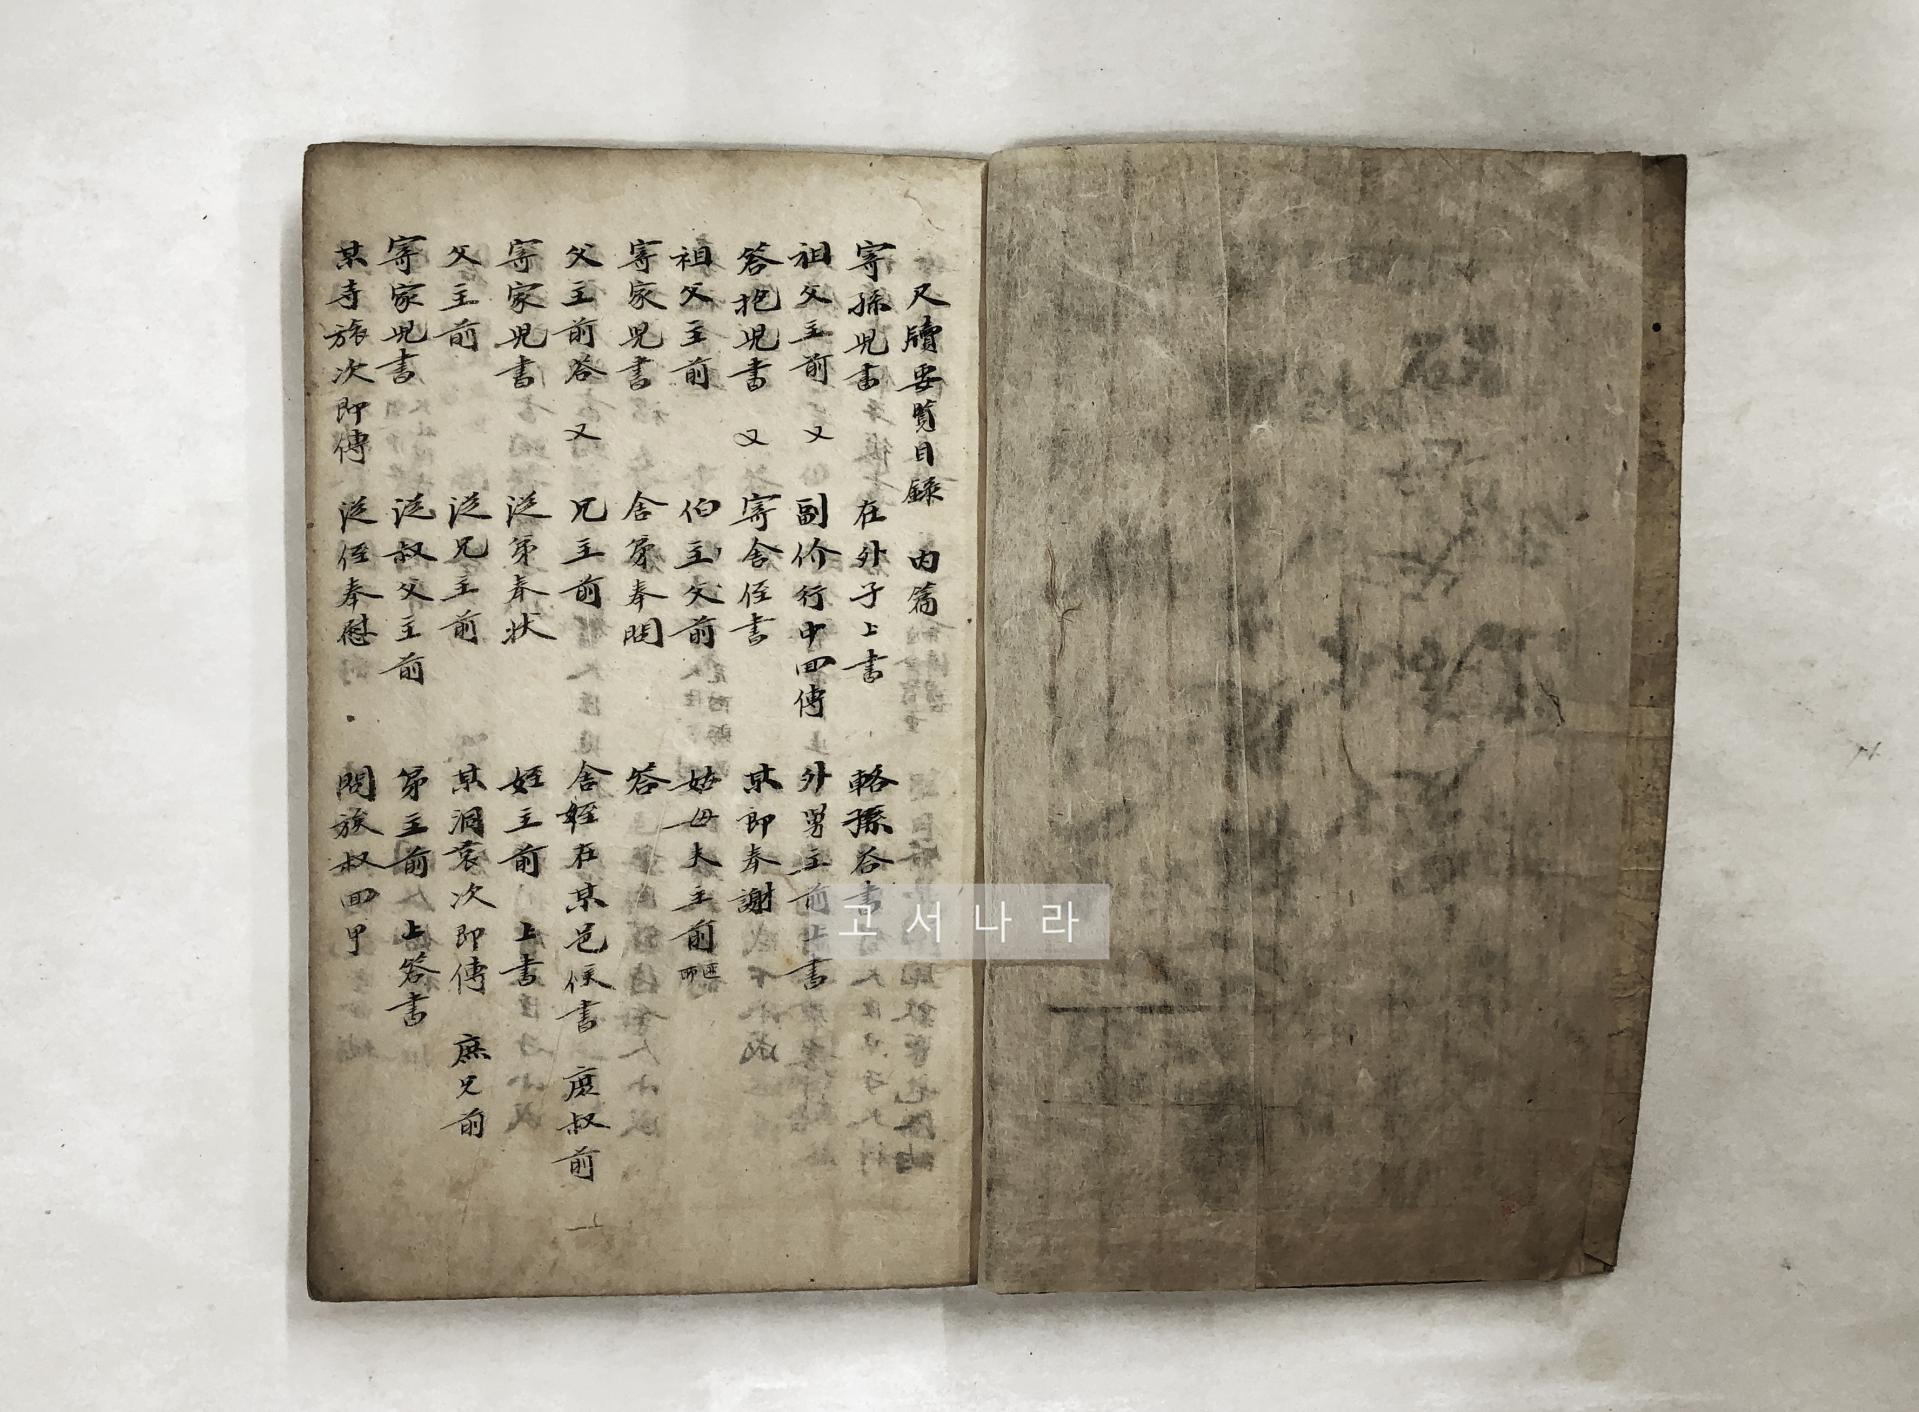 尺牘要覽目錄 內篇
寄孫兒書 在外子上書 輅孫答書
祖父主前 又 副价行中回傳 外舅主前上書
答抱兒書 又 寄舍侄書 某卽奉謝
祖父主前 伯主父前 姑母夫主前
寄家兒書 舍弟奉問 答
父主前答 又 兄主前 舍姪在某邑候書 庶叔前
寄家兒書 從弟奉狀 姪主前 上書
父主前 從兄主前 某洞哀次卽傳 庶兄前
寄家兒書 從叔父主前 弟主前 上答書
某寺旅次卽傳 從侄奉慰 問族叔回甲
고서나라